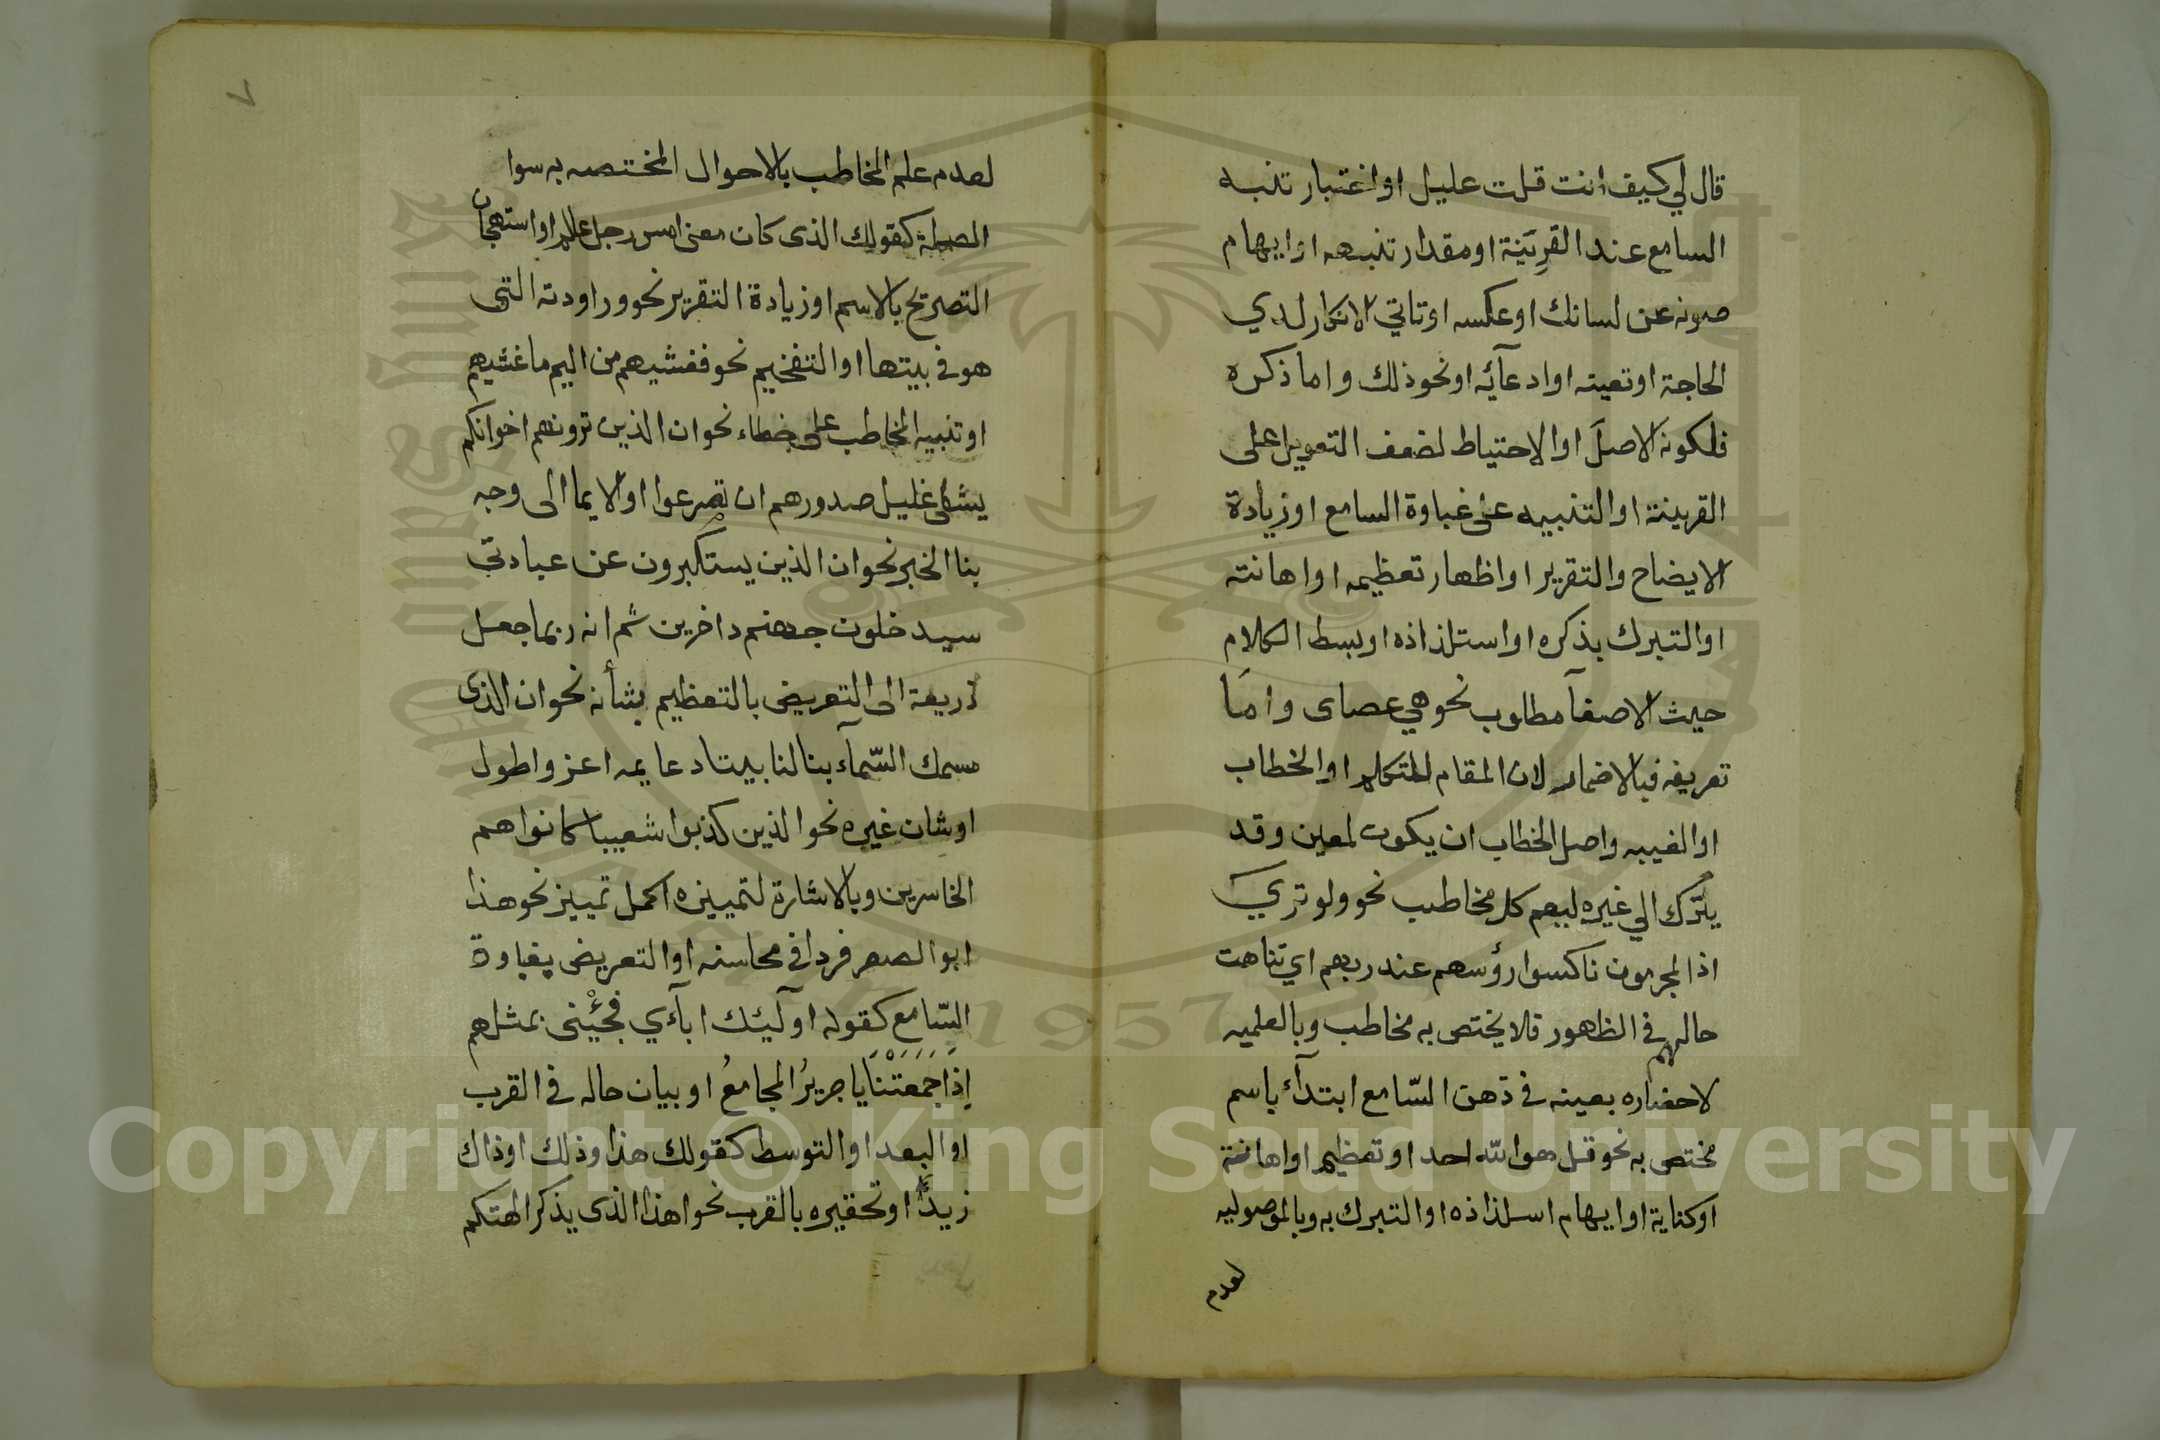 قال لي كيف انت قلت عليل او اختبار تنبه
السامع عند القرينة او مقدار تنبهه او ايهام
صونه عن لسانك او عكسه او تاتي الانكار لدي
الحاجة او تعينه او ادعآئه او نحو ذلك واما ذكره
فلكونه الاصلَ او الاحتياط لضعف التعويل على
القرينة او التنبيه على غباوة السامع او زيادة
الايضاح والتقرير او اظهار تعظيمه او اهانته
او التبرك بذكره او استلذاذه او بسط الكلام
حيث الاصغآ مطلوب نحو هي عصاى وامَا
تعريفه فبالاضمار لان المقام للمتكلم او الخطاب
او الغيبه واصل الخطاب ان يكون لمعين وقد
يترك الي غيره ليعم كل مخاطب نحو ولو تري
اذ المجرمون ناكسوا رؤسهم عند ربهم اي تناهت
حالهم في الظهور فلا يختص به مخاطب وبالعلميه
لاحضاره بعينه في ذهن السّامع ابتدآء باسم
مختص به نحو قل هو الله احد او تعظيم او اهانة
او كناية او ايهام استلذاذه او التبرك به وبالموصوليه
لعدم
٧
لعدم علم المخاطب بالاحوال المختصه به سوا
الصلة كقولك الذى كان معنى امس رجل عالم او استهجان
التصريح بالاسم او زيادة التقرير نحو وراودته التى
هو في بيتها او التفخيم نحو فغشيهم من اليم ما غشيهم
او تنبيه المخاطب على خطاء نحو ان الذين ترونهم اخوانكم
يشفى غليل صدورهم ان تصرعوا او الايما الى وجه
بنا الخبر نحو ان الذين يستكبرون عن عبادتي
سيدخلون جهنم داخرين ثم انه ربما جعل
ذريعة الى التعريض بالتعظيم بشأنه نحو ان الذى
سمك السّمآء بنا لنا بيتا دعايمه اعز واطول
او شان غيره نحو الذين كذبوا شعيبا كانوا هم
الخاسرين وبالاشارة لتمييزه اكمل تمييز نحو هذا
ابو الصقر فردا في محاسنه او التعريض بغباوة
السّامع كقوله اولئك ابآءي فجئْنى بمثلهم
إذَا جَمَعَتْنَا يا جريرُ المجامعُ او بيان حاله في القرب
او البعد او التوسط كقولك هذا وذلك او ذاك
زيدٌ او تحقيره بالقرب نحو اهذا الذى يذكر الهتكم
Copyright © King Saud University
1957